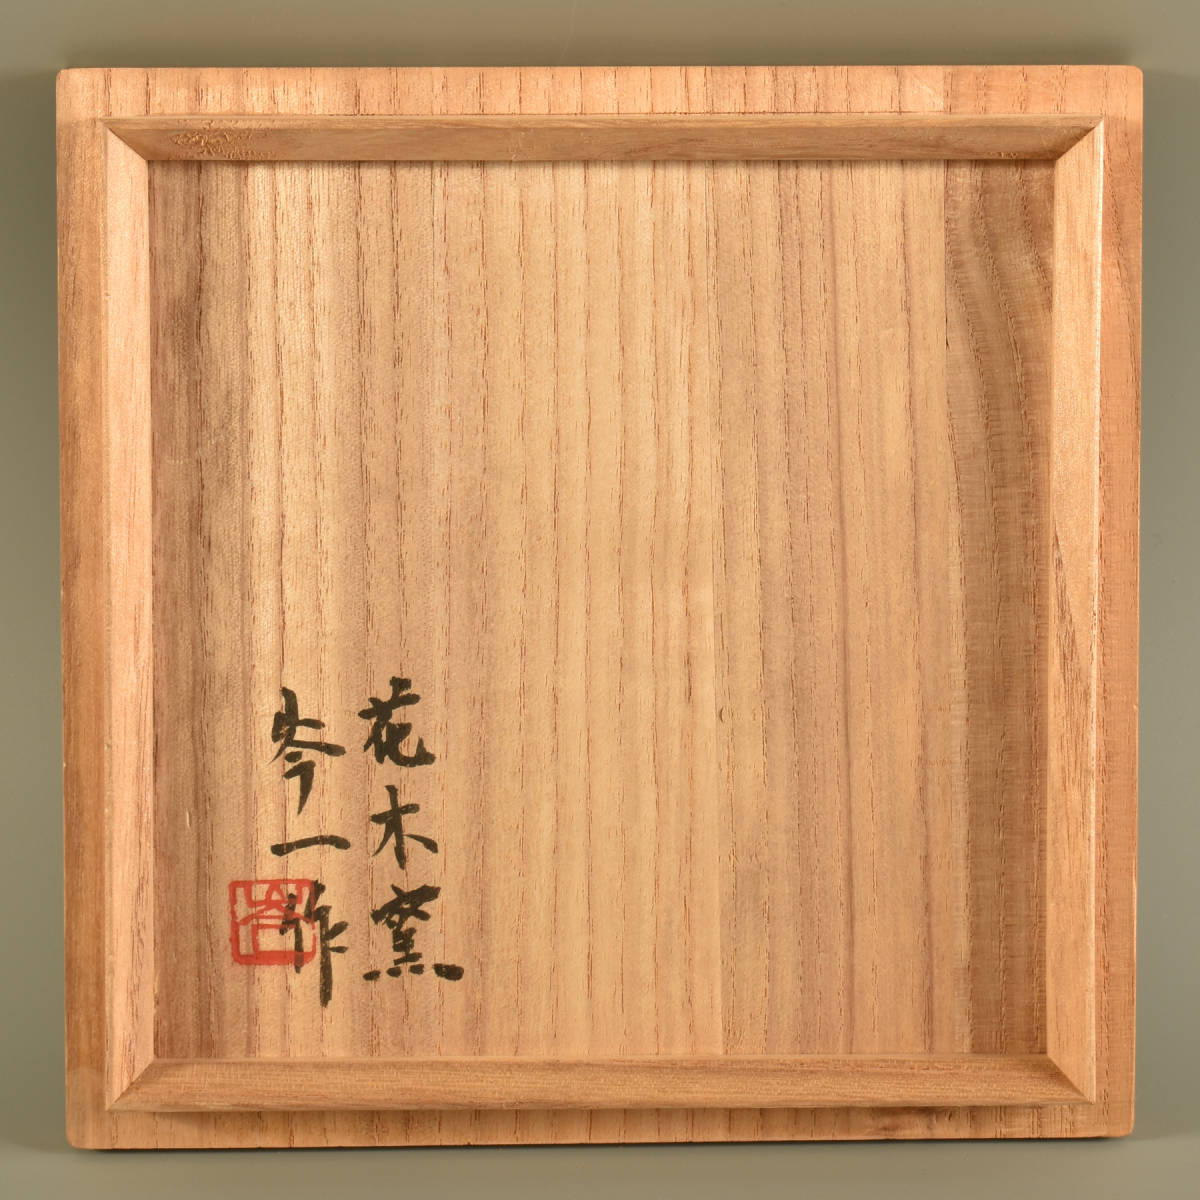 花木窯
岑一作